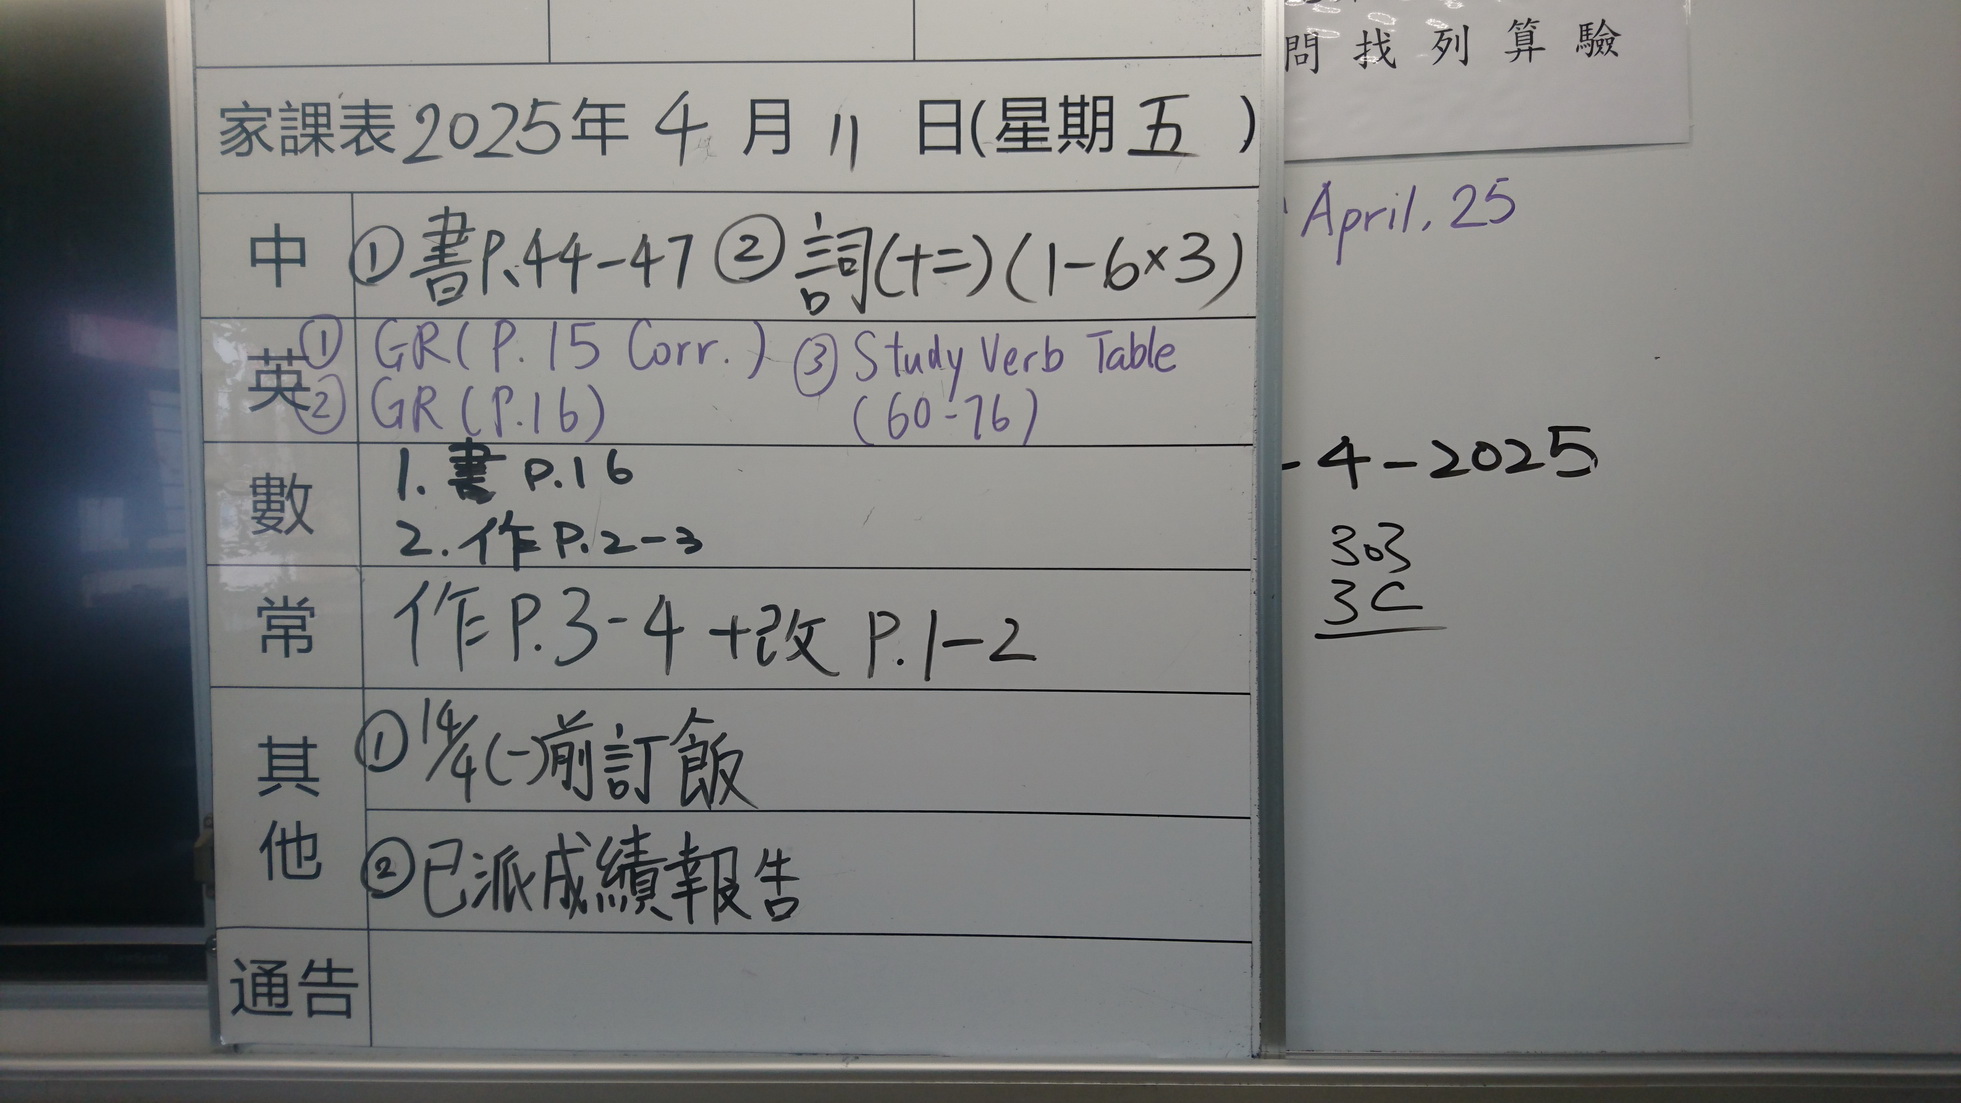 問找列算驗
家課表2025年4月11日(星期五)
中 ①書P.44-47 ②詞(十二)(1-6×3)
英 ① GR(P.15 Corr.) ③ Study Verb Table
② GR(P.16) (60-76)
數 1. 書 P.16
2. 作 P.2-3
常 作P.3-4+改 P.1-2
其他 ①14/4(一)前訂飯
②已派成績報告
通告
April. 25
-4-2025
303
3C